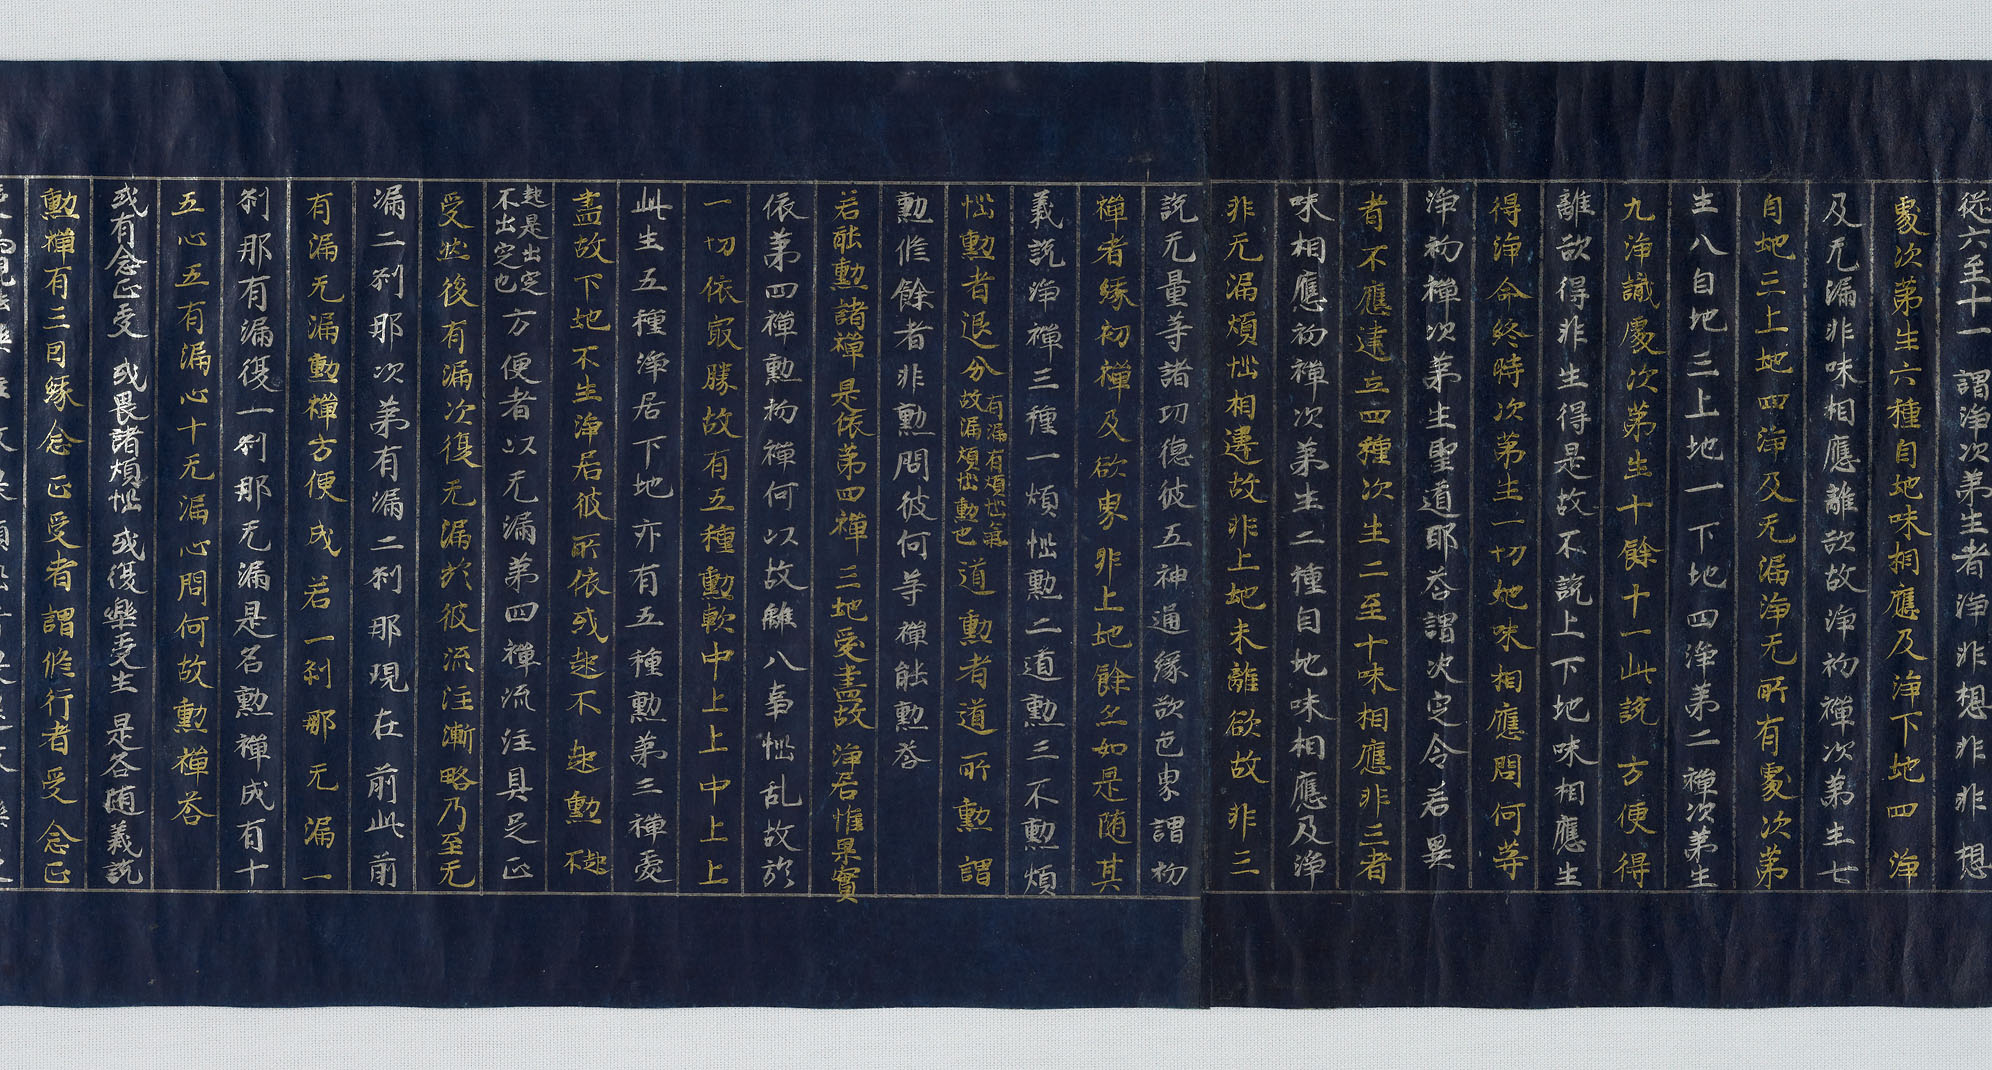 從六至十一　謂淨次第生者淨非想非非想
處次第生六種自地味相應及淨下地四淨
及无漏非味相應離欲故淨初禪次第生七
自地三上地四淨及无漏淨无所有處次第
生八自地三上地一下地四淨第二禪次第生
九淨識處次第生十餘十一此說　方便得
離欲得非生得是故不說上下地味相應生
得淨命終時次第生一切地味相應問何等
淨初禪次第生聖道耶答謂决定令若異
者不應建立四種次生二至十味相應非三者
味相應初禪次第生二種自地味相應及淨
非无漏煩惱相違故非上地未離欲故非三
說无量等諸功德彼五神通緣欲色界謂初
禪者緣初禪及欲界非上地餘亦如是随其
義說淨禪三種一煩惱勳二道勳三不勳煩
惱勳者退分有漏有煩惱氣故漏煩惱勳也道勳者道所勳謂
勳修餘者非勳問彼何等禪能勳答
若能勳諸禪是依第四禪三地愛盡故淨居惟果實
依第四禪勳初禪何以故離八事惱乱故於
一切依㝡勝故有五種勳軟中上上中上上
此生五種淨居下地亦有五種勳第三禪愛
盡故下地不生淨居彼所依或起不起勳不起
起是出定不出定也方便者以无漏第四禪流注具足正
受然後有漏次復无漏於彼流注漸略乃至无
漏二刹那次第有漏二刹那現在前此前
有漏无漏勳禪方便成　若一刹那无漏一
刹那有漏復一刹那无漏是名勳禪成有十
五心五有漏心十无漏心問何故勳禪答
或有念正受　或畏諸煩惱　或復樂受生　是各随義說
勳禪有三因緣念正受者謂修行者受念正